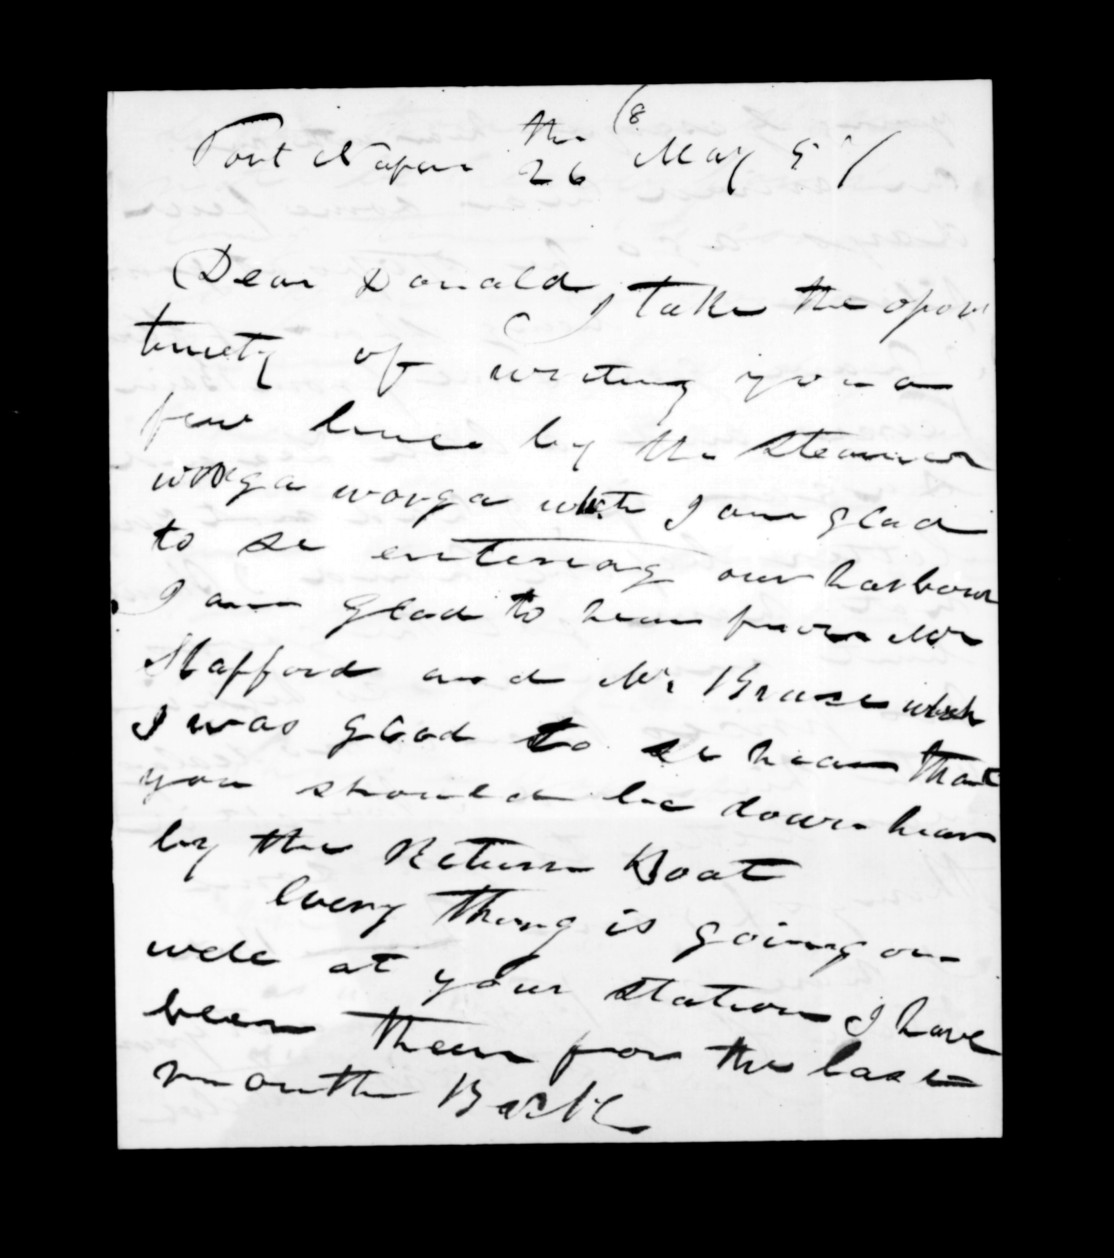 Port Napier the 26 May 57
Dear Donald I take the opor
tunety of writing you a
few lines by the steamer
wonga wonga which I am glad
to se entering our harbour
I am glad to hear from Mr
Stafford and Mr Bruse which
I was glad to se hear that
you should be down hear
by the Return Boat
Every thing is going on
well at your station I have
been there for the last
month Back